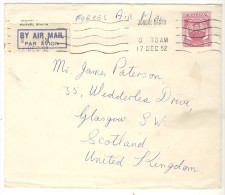 FORCES AIR MAIL
BY AIR MAIL
PAR AVION
8 30AM
17 DEC 52
Mr. James Paterson,
35, Wedderlea Drive,
Glasgow S.W.
Scotland
United Kingdom